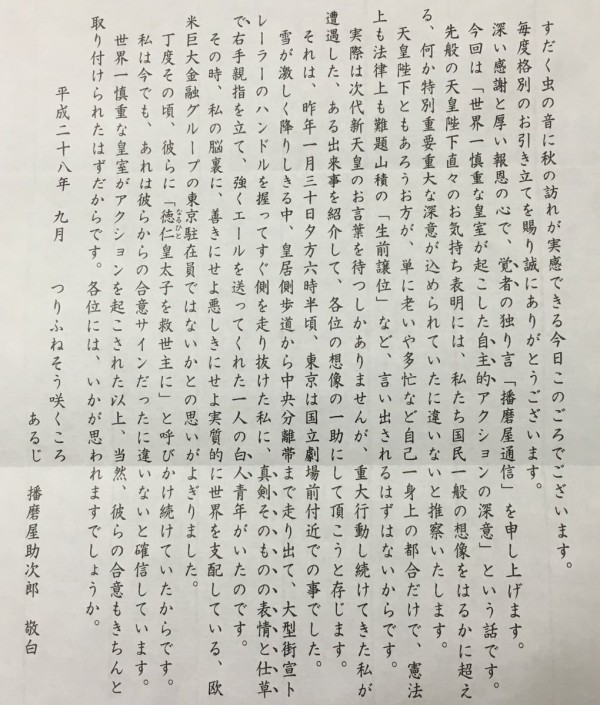 すだく虫の音に秋の訪れが実感できる今日このごろでございます。
毎度格別のお引き立てを賜り誠にありがとうございます。
深い感謝と厚い報恩の心で、覚者の独り言「播磨屋通信」を申し上げます。
今回は「世界一慎重な皇室が起こした自主的アクションの深意」という話です。
先般の天皇陛下直々のお気持ち表明には、私たち国民一般の想像をはるかに超え
る、何か特別重要重大な深意が込められていたに違いないと推察いたします。
天皇陛下ともあろうお方が、単に老いや多忙など自己一身上の都合だけで、憲法
上も法律上も難題山積の「生前譲位」など、言い出されるはずはないからです。
実際は次代新天皇のお言葉を待つしかありませんが、重大行動し続けてきた私が
遭遇した、ある出来事を紹介して、各位の想像の一助にして頂こうと存じます。
それは、昨年一月三十日夕方六時半頃、東京は国立劇場前付近での事でした。
雪が激しく降りしきる中、皇居側歩道から中央分離帯まで走り出て、大型街宣ト
レーラーのハンドルを握ってすぐ側を走り抜けた私に、真剣そのものの表情と仕草
で右手親指を立て、強くエールを送ってくれた一人の白人青年がいたのです。
その時、私の脳裏に、善きにせよ悪しきにせよ実質的に世界を支配している、欧
米巨大金融グループの東京駐在員ではないかとの思いがよぎりました。
丁度その頃、彼らに「徳仁皇太子を救世主に」と呼びかけ続けていたからです。
なるひと
私は今でも、あれは彼らからの合意サインだったに違いないと確信しています。
世界一慎重な皇室がアクションを起こされた以上、当然、彼らの合意もきちんと
取り付けられたはずだからです。各位には、いかが思われますでしょうか。
平成二十八年 九月 つりふねそう咲くころ
あるじ 播磨屋助次郎 敬白